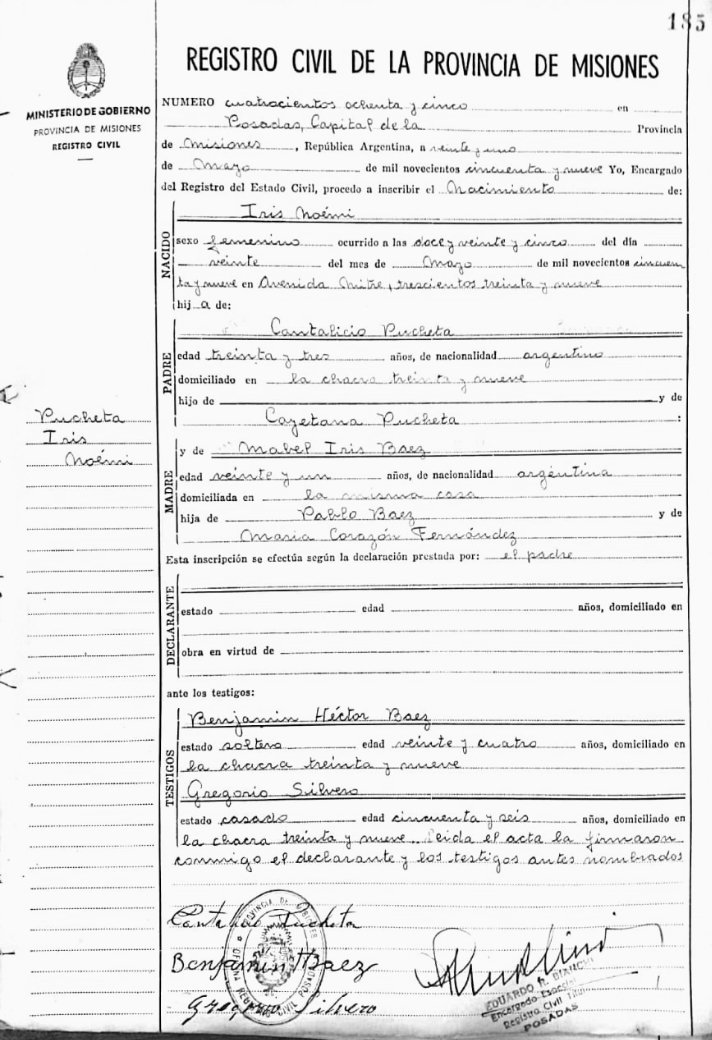 185
REGISTRO CIVIL DE LA PROVINCIA DE MISIONES
MINISTERIO DE GOBIERNO
PROVINCIA DE MISIONES
REGISTRO CIVIL
NUMERO cuatrocientos ochenta y cinco en
Posadas, Capital de la Provincia
de Misiones, República Argentina, a veinte y uno
de Mayo de mil novecientos cincuenta y nueve Yo, Encargado
del Registro del Estado Civil, procedo a inscribir el Nacimiento de:
NACIDO
Iris Noémi
sexo femenino ocurrido a las doce y veinte y cinco del día
veinte del mes de Mayo de mil novecientos cincuen
ta y nueve en Avenida Mitre, trescientos treinta y nueve
hij a de:
PADRE
Cantalicio Pucheta
edad treinta y tres años, de nacionalidad argentino
domiciliado en la chacra treinta y nueve
hijo de y de
Cayetana Pucheta :
Pucheta
Iris
Noémi
MADRE
y de Mabel Iris Baez
edad veinte y un años, de nacionalidad argentina
domiciliada en la misma casa
hija de Pablo Baez y de
Maria Corazón Fernández
Esta inscripción se efectúa según la declaración prestada por: el padre
DECLARANTE
estado edad años, domiciliado en
obra en virtud de
ante los testigos:
TESTIGOS
Benjamin Héctor Baez
estado soltero edad veinte y cuatro años, domiciliado en
la chacra treinta y nueve
Gregorio Silvero
estado casado edad cincuenta y seis años, domiciliado en
la chacra treinta y nueve. Leida el acta la firmaron
conmigo el declarante y los testigos antes nombrados
Cantalicio Pucheta
Benjamin H Baez
Gregorio Silvero
PROVINCIA DE MISIONES
REGISTRO CIVIL POSADAS
EDUARDO A. BIANCHI
Encargado
Registro Civil
POSADAS